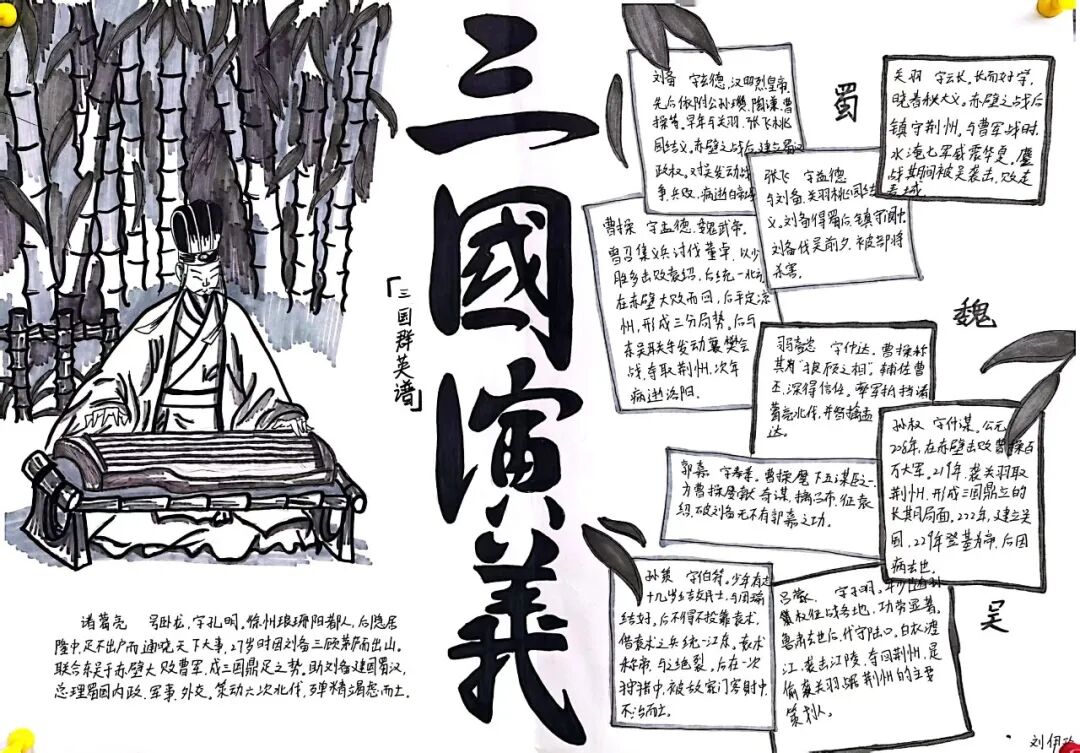 三國演義
「三国群英谱」
诸葛亮 号卧龙,字孔明,徐州琅琊阳都人,后隐居
隆中,足不出户而通晓天下大事,27岁时因刘备三顾茅庐而出山。
联合东吴于赤壁大败曹军,成三国鼎足之势。助刘备建国蜀汉,
总理蜀国内政、军事、外交。策动六次北伐,殚精竭虑而亡。
蜀
刘备 字玄德,汉昭烈皇帝,
先后依附公孙瓒、陶谦、曹
操等。早年与关羽、张飞桃
园结义。赤壁之战后,建立蜀汉
政权,对吴发动战
争兵败,病逝白帝
关羽 字云长,长而好学,
晓春秋大义。赤壁之战后
镇守荆州,与曹军战时
水淹七军威震华夏。鏖
战期间被吴袭击,败走
麦城
张飞 字益德
与刘备、关羽桃园结
义。刘备得蜀后,镇守阆中
刘备伐吴前夕,被部将
杀害。
魏
曹操 字孟德,魏武帝。
曾召集义兵讨伐董卓,以少
胜多击败袁绍,后统一北方
在赤壁大败而回,后平定凉
州,形成三分局势。后与
东吴联手发动襄樊会
战,夺取荆州,次年
病逝洛阳。
司马懿 字仲达,曹操称
其有“狼顾之相”,辅佐曹
丕,深得信任。率军抵挡诸
葛亮北伐,并曾擒孟
达。
郭嘉 字奉孝,曹操麾下五谋臣之一,
为曹操屡献奇谋,擒吕布、征袁
绍、破刘备无不有郭嘉之功。
吴
孙权 字仲谋。公元
208年,在赤壁击败曹操百
万大军。219年,袭关羽取
荆州,形成三国鼎立的
长期局面。222年,建立吴
国,229年登基为帝,后因
病去世。
孙策 字伯符。少年有志
十几岁结交名士,与周瑜
结好。后不得不投靠袁术,
借袁术之兵统一江东。袁术
称帝,与之绝裂,后在一次
狩猎中,被敌家门客射中
不治而亡。
吕蒙
权征战各地,功劳显著。
鲁肃去世后,代守陆口,白衣渡
江,袭击江陵,夺回荆州,是
偷袭关羽占据荆州的主要
策划人。
刘伊